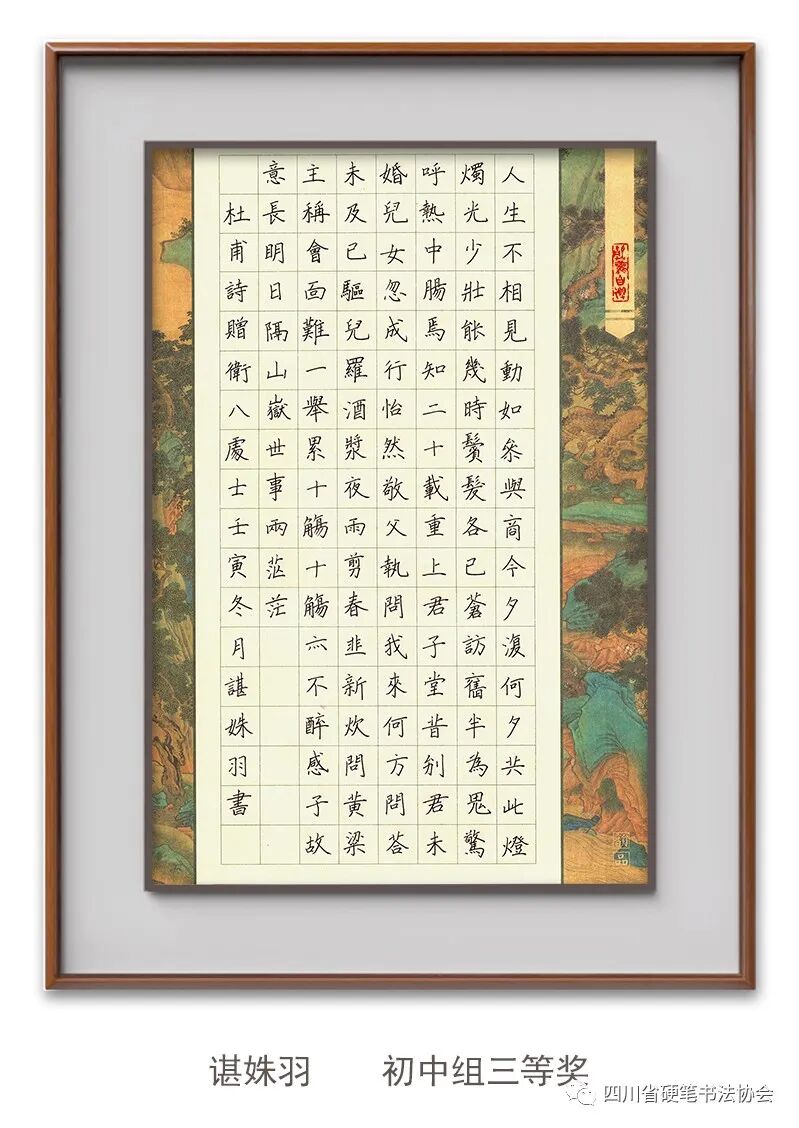 人生不相見動如參與商今夕復何夕共此燈
燭光少壯能幾時鬢髮各已蒼訪舊半為鬼驚
呼熱中腸焉知二十載重上君子堂昔别君未
婚兒女忽成行怡然敬父執問我來何方問答
未及已驅兒羅酒漿夜雨剪春韭新炊問黃梁
主稱會面難一舉累十觴十觴亦不醉感子故
意長明日隔山嶽世事兩茫茫
杜甫詩贈衛八處士壬寅冬月諶姝羽書
谌姝羽 初中组三等奖
四川省硬笔书法协会